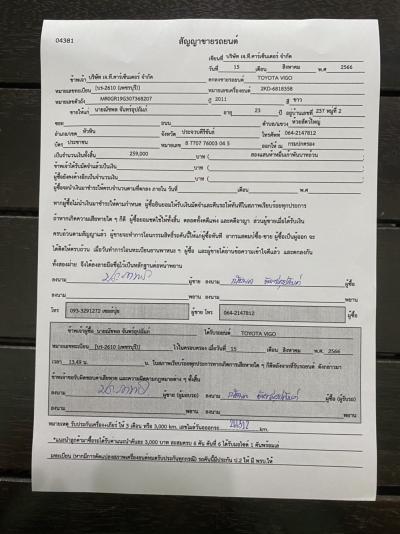 04381
สัญญาขายรถยนต์
เขียนที่ บริษัท เจ.ที.คาร์เซ็นเตอร์ จำกัด
วันที่ 15 เดือน สิงหาคม พ.ศ 2566
ข้าพเจ้า บริษัท เจ.ที.คาร์เซ็นเตอร์ จำกัด ตกลงขายรถยนต์ TOYOTA VIGO
หมายเลขทะเบียน (เพชรบุรี) หมายเลขเครื่องยนต์ 2KD-6818358
หมายเลขตัวถัง MR0GR19G307368207 ปี 2011 สี ขาว
ขายให้แก่ อายุ 23 ปี อยู่บ้านเลขที่ 237 หมู่ที่ 2
ซอย ถนน ตำบล/แขวง ห้วยสัตว์ใหญ่
อำเภอ/เขต หัวหิน จังหวัด ประจวบคีรีขันธ์ โทรศัพท์ 064-2147812
บัตร ประชาชน หมายเลข 8 7707 76003 04 5 ออกให้ ณ กรมปกครอง
เป็นจำนวนเงินทั้งสิ้น 259,000 บาท ( สองแสนห้าหมื่นเก้าพันบาทถ้วน )
ข้าพเจ้าได้รับมัดจำแล้วเป็นเงิน บาท ( )
ผู้ซื้อยังคงค้างอีกเป็นจำนวนเงิน บาท ( )
ผู้ซื้อจะนำเงินมาชำระให้ครบจำนวนตามที่ตกลง ภายใน วันที่ เดือน พ.ศ
หากผู้ซื้อไม่นำเงินมาชำระให้ตามกำหนด ผู้ซื้อยินยอมให้ริบเงินมัดจำและคืนรถให้ทันทีในสภาพเรียบร้อยทุกประการ
ถ้าหากเกิดความเสียหายใด ๆ ก็ดี ผู้ซื้อยอมชดใช้ให้ทั้งสิ้น ตลอดทั้งคดีแพ่ง และคดีอาญา ส่วนผู้ขายเมื่อได้รับเงิน
ครบถ้วนตามสัญญาแล้ว ผู้ขายจะทำการโอนกรรมสิทธิ์รถคันนี้ให้แก่ผู้ซื้อทันที
ได้คิดให้ครบถ้วน เมื่อวันทำการโอนทะเบียนยานพาหนะ ๆ ผู้ซื้อ และผู้ขายได้อ่านข้อความเข้าใจดีแล้ว และตกลงกัน
ทั้งสองฝ่าย จึงได้ลงลายมือชื่อไว้เป็นหลักฐานต่อหน้าพยาน
ลงนาม ผู้ขาย ลงนาม ผู้ซื้อ
ลงนาม พยาน ลงนาม พยาน
โทร 093-3291272 ผู้ขาย โทร 064-2147812 ผู้ซื้อ
ข้าพเจ้าผู้ซื้อ ได้รับรถยนต์ TOYOTA VIGO
หมายเลขทะเบียน (เพชรบุรี) ไว้ในครอบครอง เมื่อวันที่ 15 เดือน สิงหาคม พ.ศ. 2566
เวลา 13.49 น.
ข้าพเจ้าขอรับผิดชอบค่าเสียหาย และความผิดตามกฎหมายต่าง ๆ ทั้งสิ้น
ลงนาม ผู้ขาย (ผู้มอบรถ) ลงนาม ผู้ซื้อ (ผู้รับรถ)
ลงนาม พยาน ลงนาม พยาน
หมายเหตุ รับประกันเครื่อง+เกียร์ ให้ 3 เดือน หรือ 3,000 km. เลขไมล์วันออกรถ km.
*แนะนำลูกค้ามาซื้อรถได้รับค่าแนะนำคันละ 3,000 บาท สะสมครบ 6 คัน